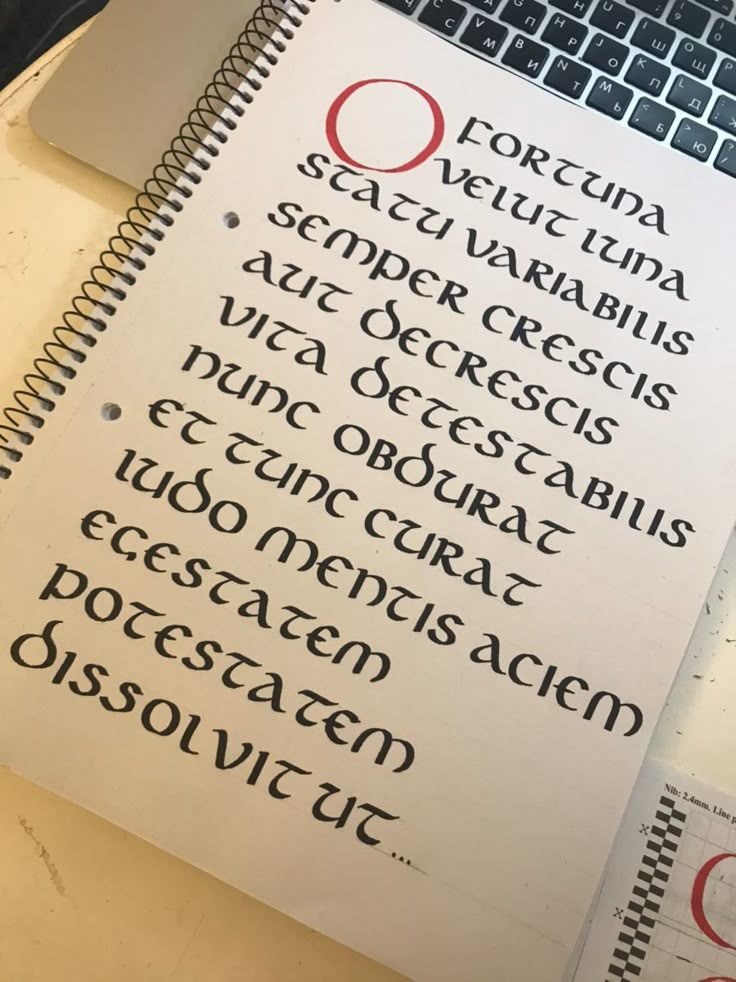 O FORTUNA
VELUT LUNA
STATU VARIABILIS
SEMPER CRESCIS
AUT DECRESCIS
VITA DETESTABILIS
NUNC OBDURAT
ET TUNC CURAT
LUDO MENTIS ACIEM
EGESTATEM
POTESTATEM
DISSOLVIT UT...
Nib: 2.4mm. Line